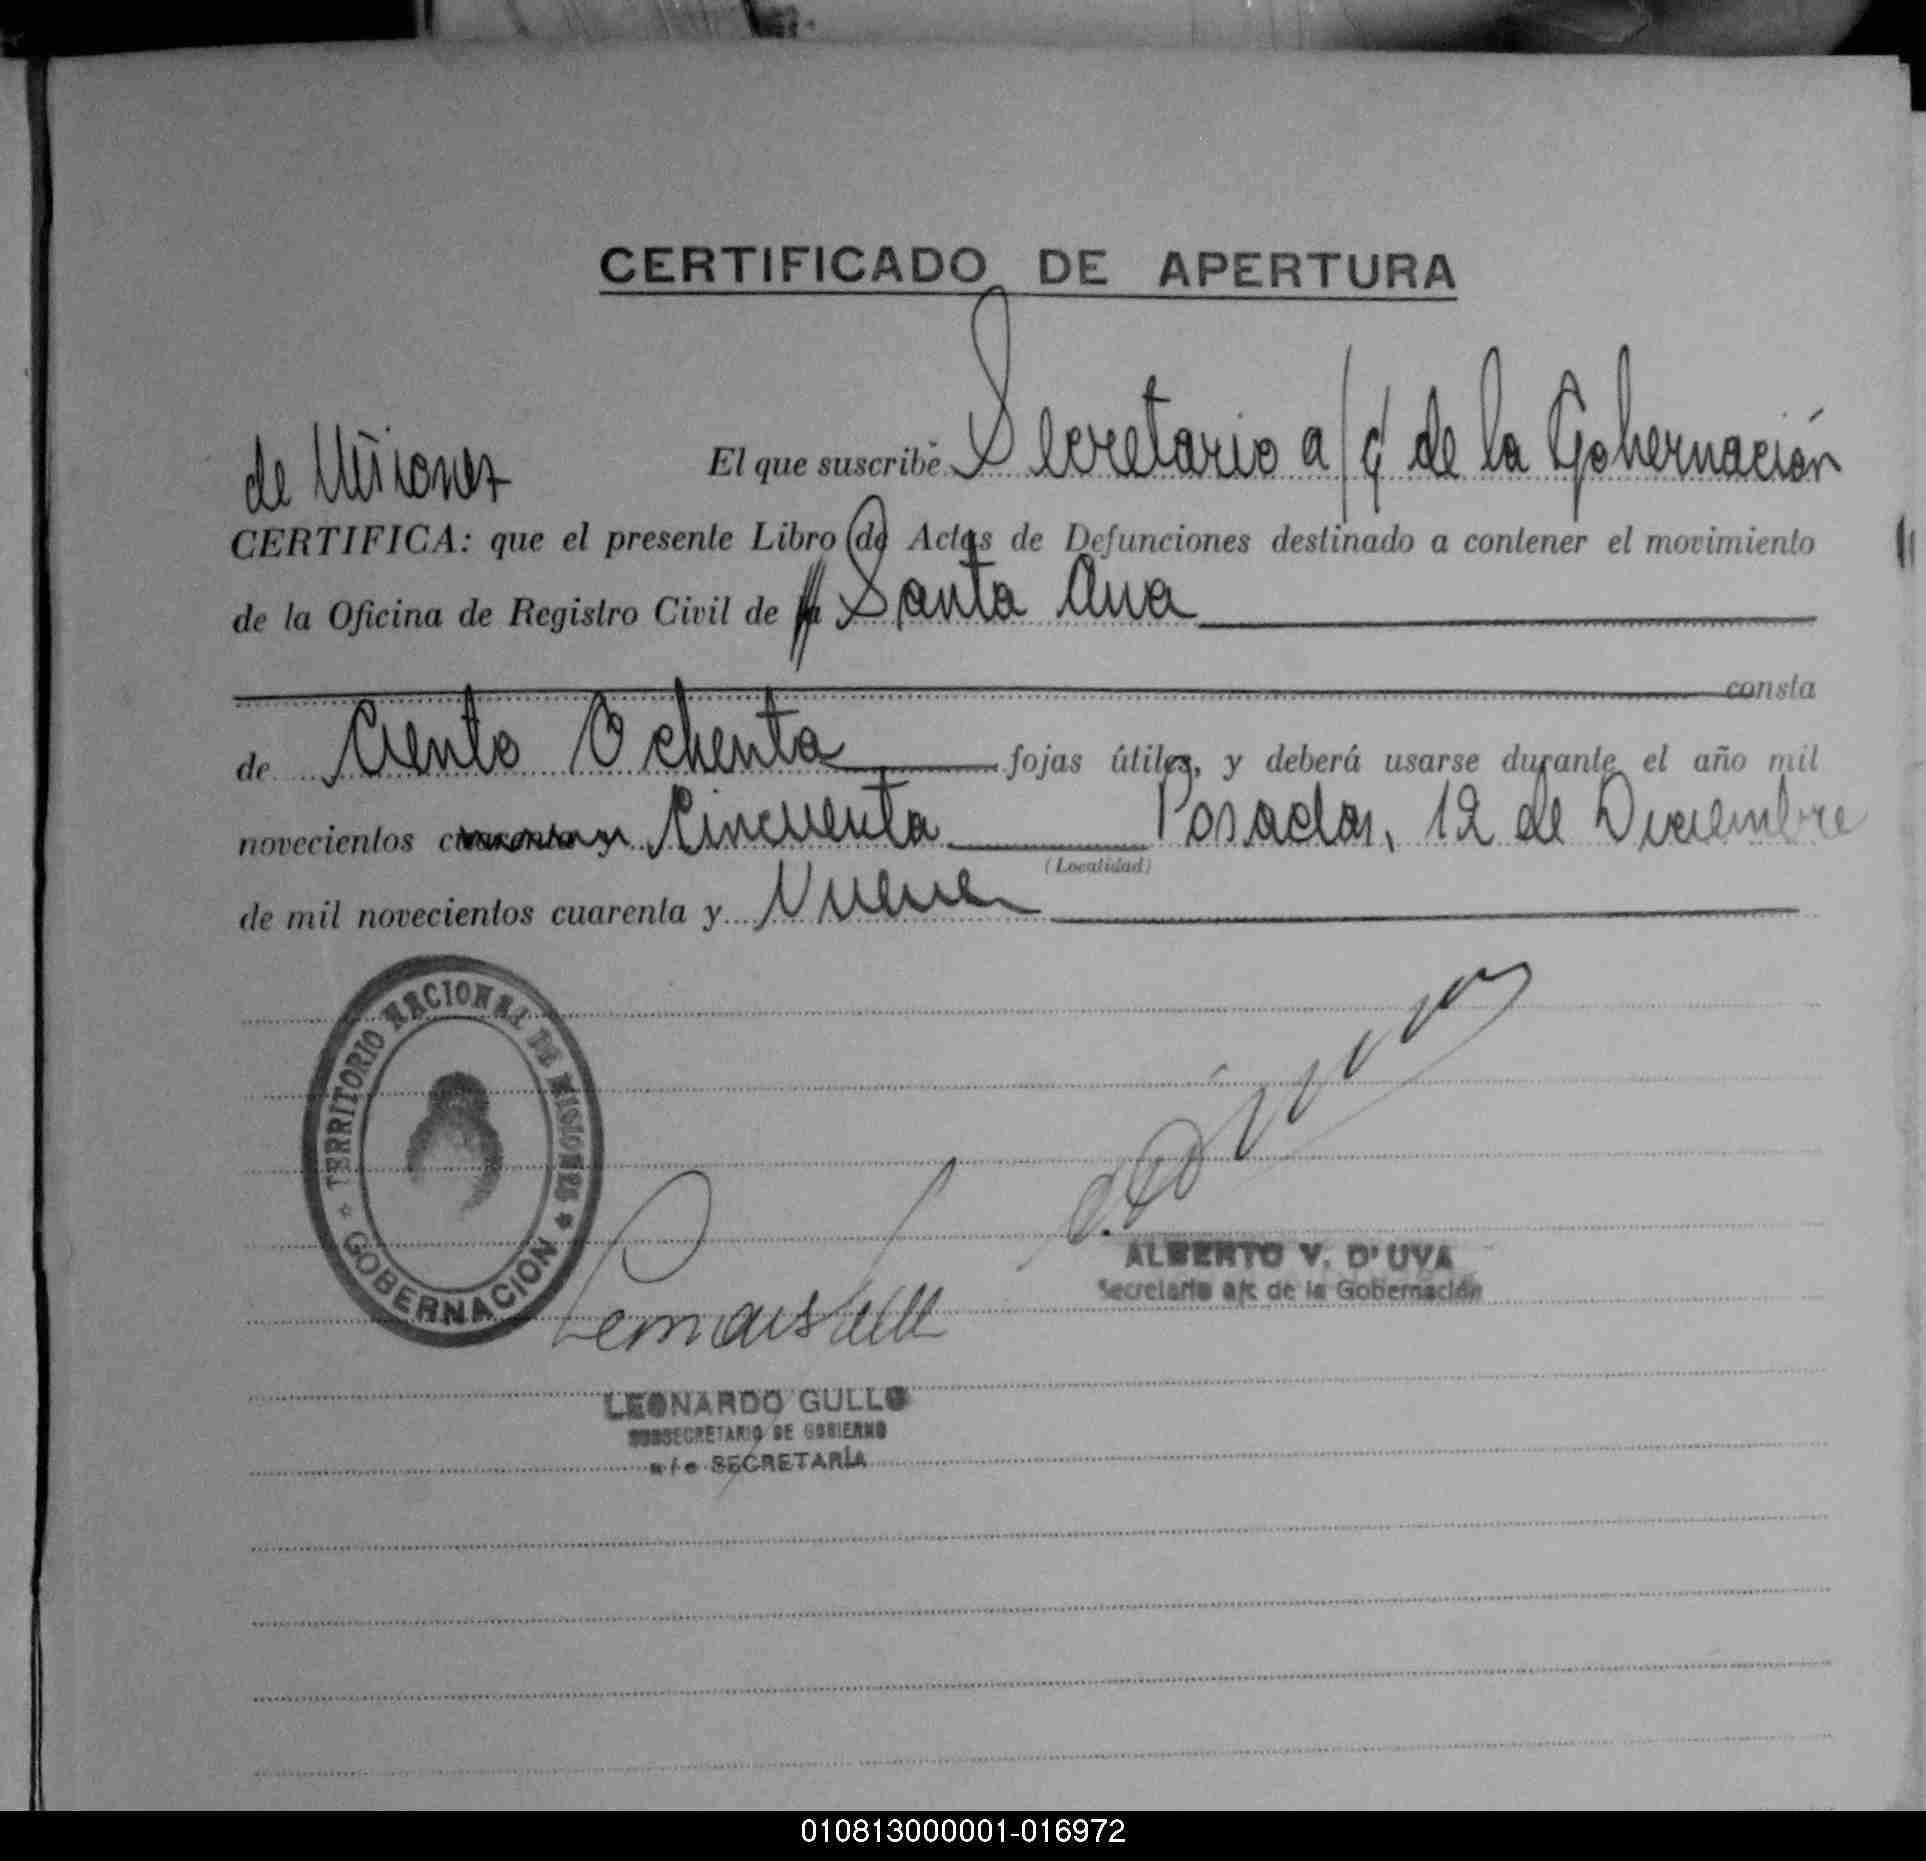 CERTIFICADO DE APERTURA
El que suscribe Secretario a/c de la Gobernación
de Misiones
CERTIFICA: que el presente Libro de Actas de Defunciones destinado a contener el movimiento
de la Oficina de Registro Civil de Santa Ana
consta
de Ciento Ochenta fojas útiles, y deberá usarse durante el año mil
novecientos cuarenta y Cincuenta Posadas, 12 de Diciembre
(Localidad)
de mil novecientos cuarenta y Nueve
TERRITORIO NACIONAL DE MISIONES
GOBERNACION
ALBERTO V. D'UVA
Secretario a/c de la Gobernación
LEONARDO GULLO
SUBSECRETARIO DE GOBIERNO
a/c SECRETARÍA
010813000001-016972